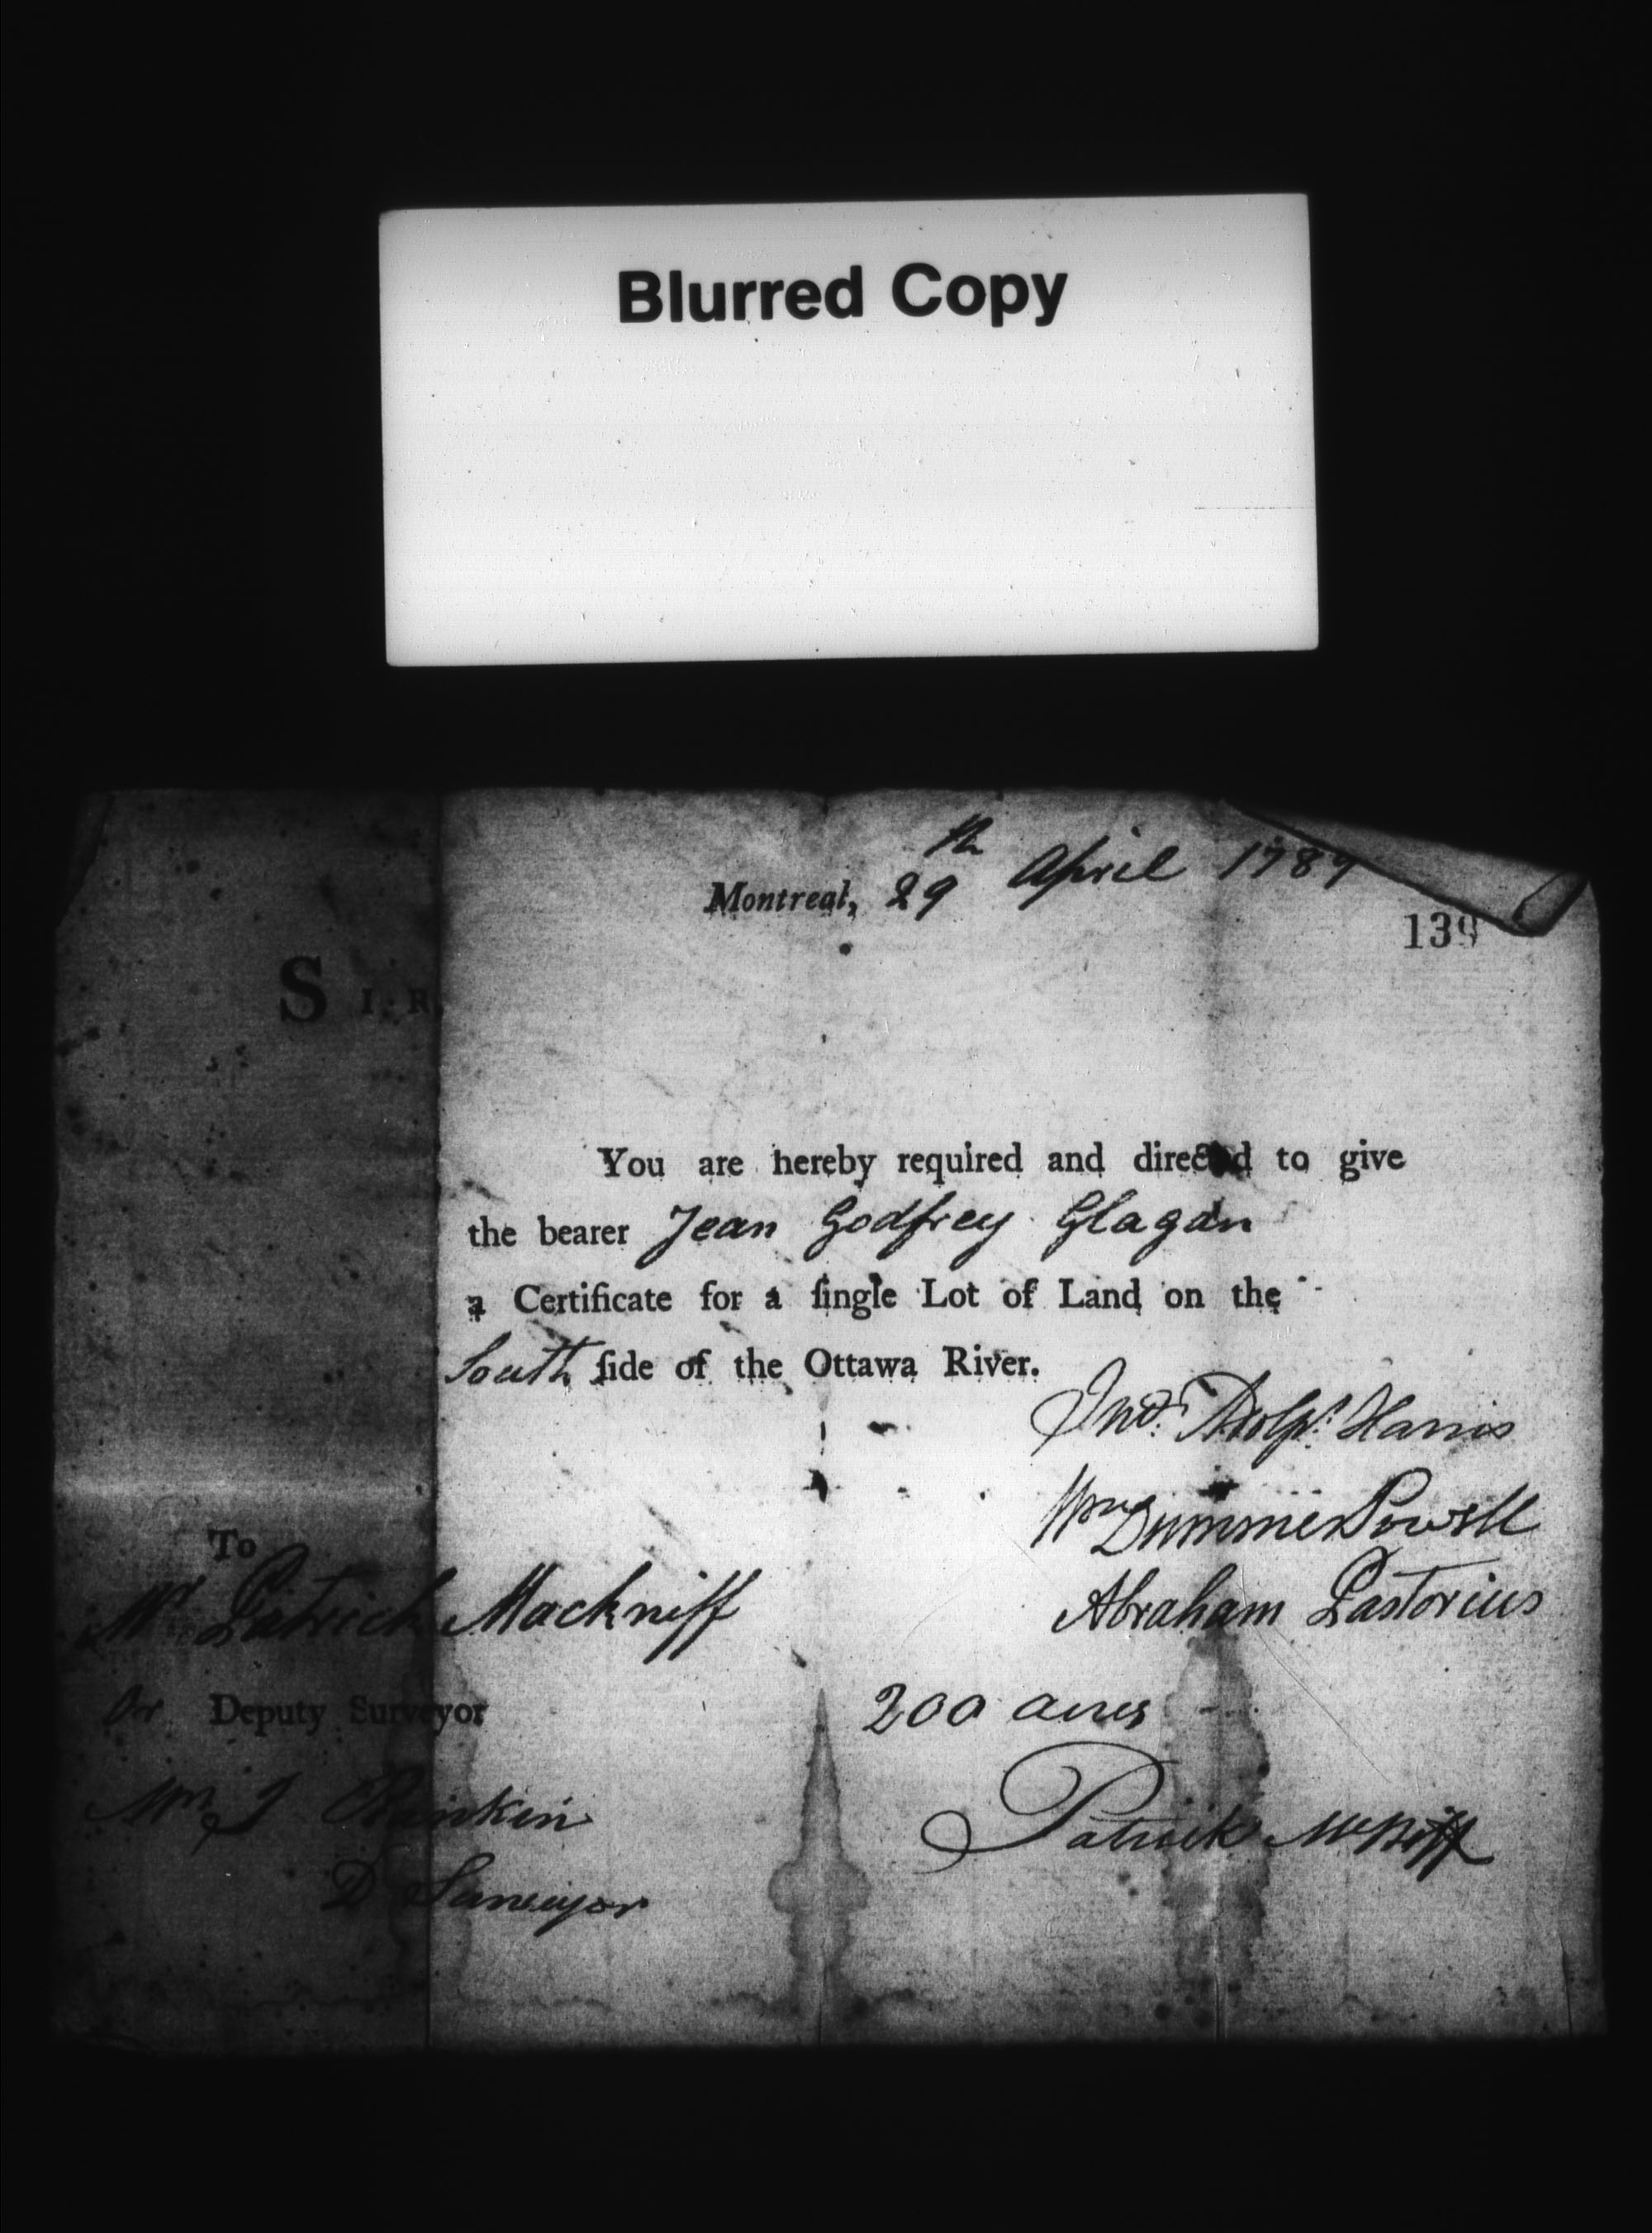 Blurred Copy
Montreal, 29th April 1789
139
SIR,
You are hereby required and directed to give
the bearer Jean Godfrey Glagan
a Certificate for a ſingle Lot of Land on the
South ſide of the Ottawa River.
Jno. Adolps. Harris
Wm Dummer Powell
Abraham Pastorius
To
Mr Patrick Mackniff
Or Deputy Surveyor
200 acres
Wm J Rankin
D Surveyor
Patrick McNiff